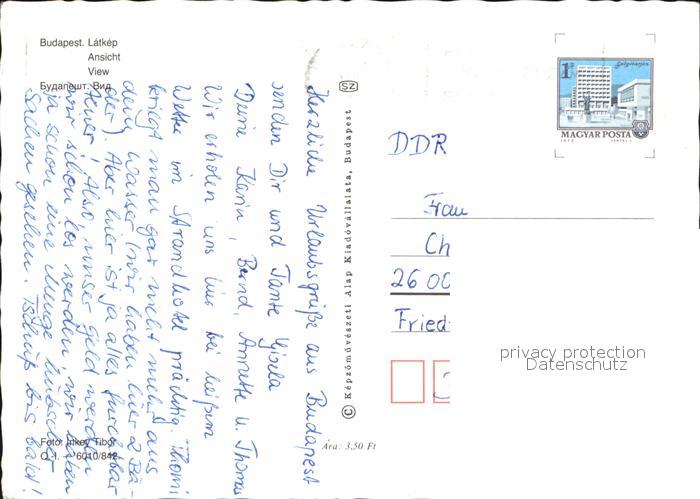 Budapest. Látkép
Ansicht
View
Будапешт. Вид
Herzliche Urlaubsgrüße aus Budapest
senden Dir und Tante Gisela
Deine Karin, Bernd, Annette u. Thomas
Wir erholen uns hier bei heißem
Wetter im Strandhotel prächtig. Thomi
kriegt man gar nicht mehr aus
dem Wasser (wir haben hier 2 Bä-
der). Aber hier ist ja alles furchtbar
teuer! Also unser Geld werden
wir schon los werden, wir haben
ja schon eine Menge hübscher
Sachen gesehen. Tschüß bis bald!
Foto: Inkey Tibor
Q.-I. – 6010/842
Ára: 3,50 Ft
SZ
© Képzőművészeti Alap Kiadóvállalata, Budapest
1Ft
Salgótarján
MAGYAR POSTA
DDR
Frau
Ch
26 00
Fried
privacy protection
Datenschutz